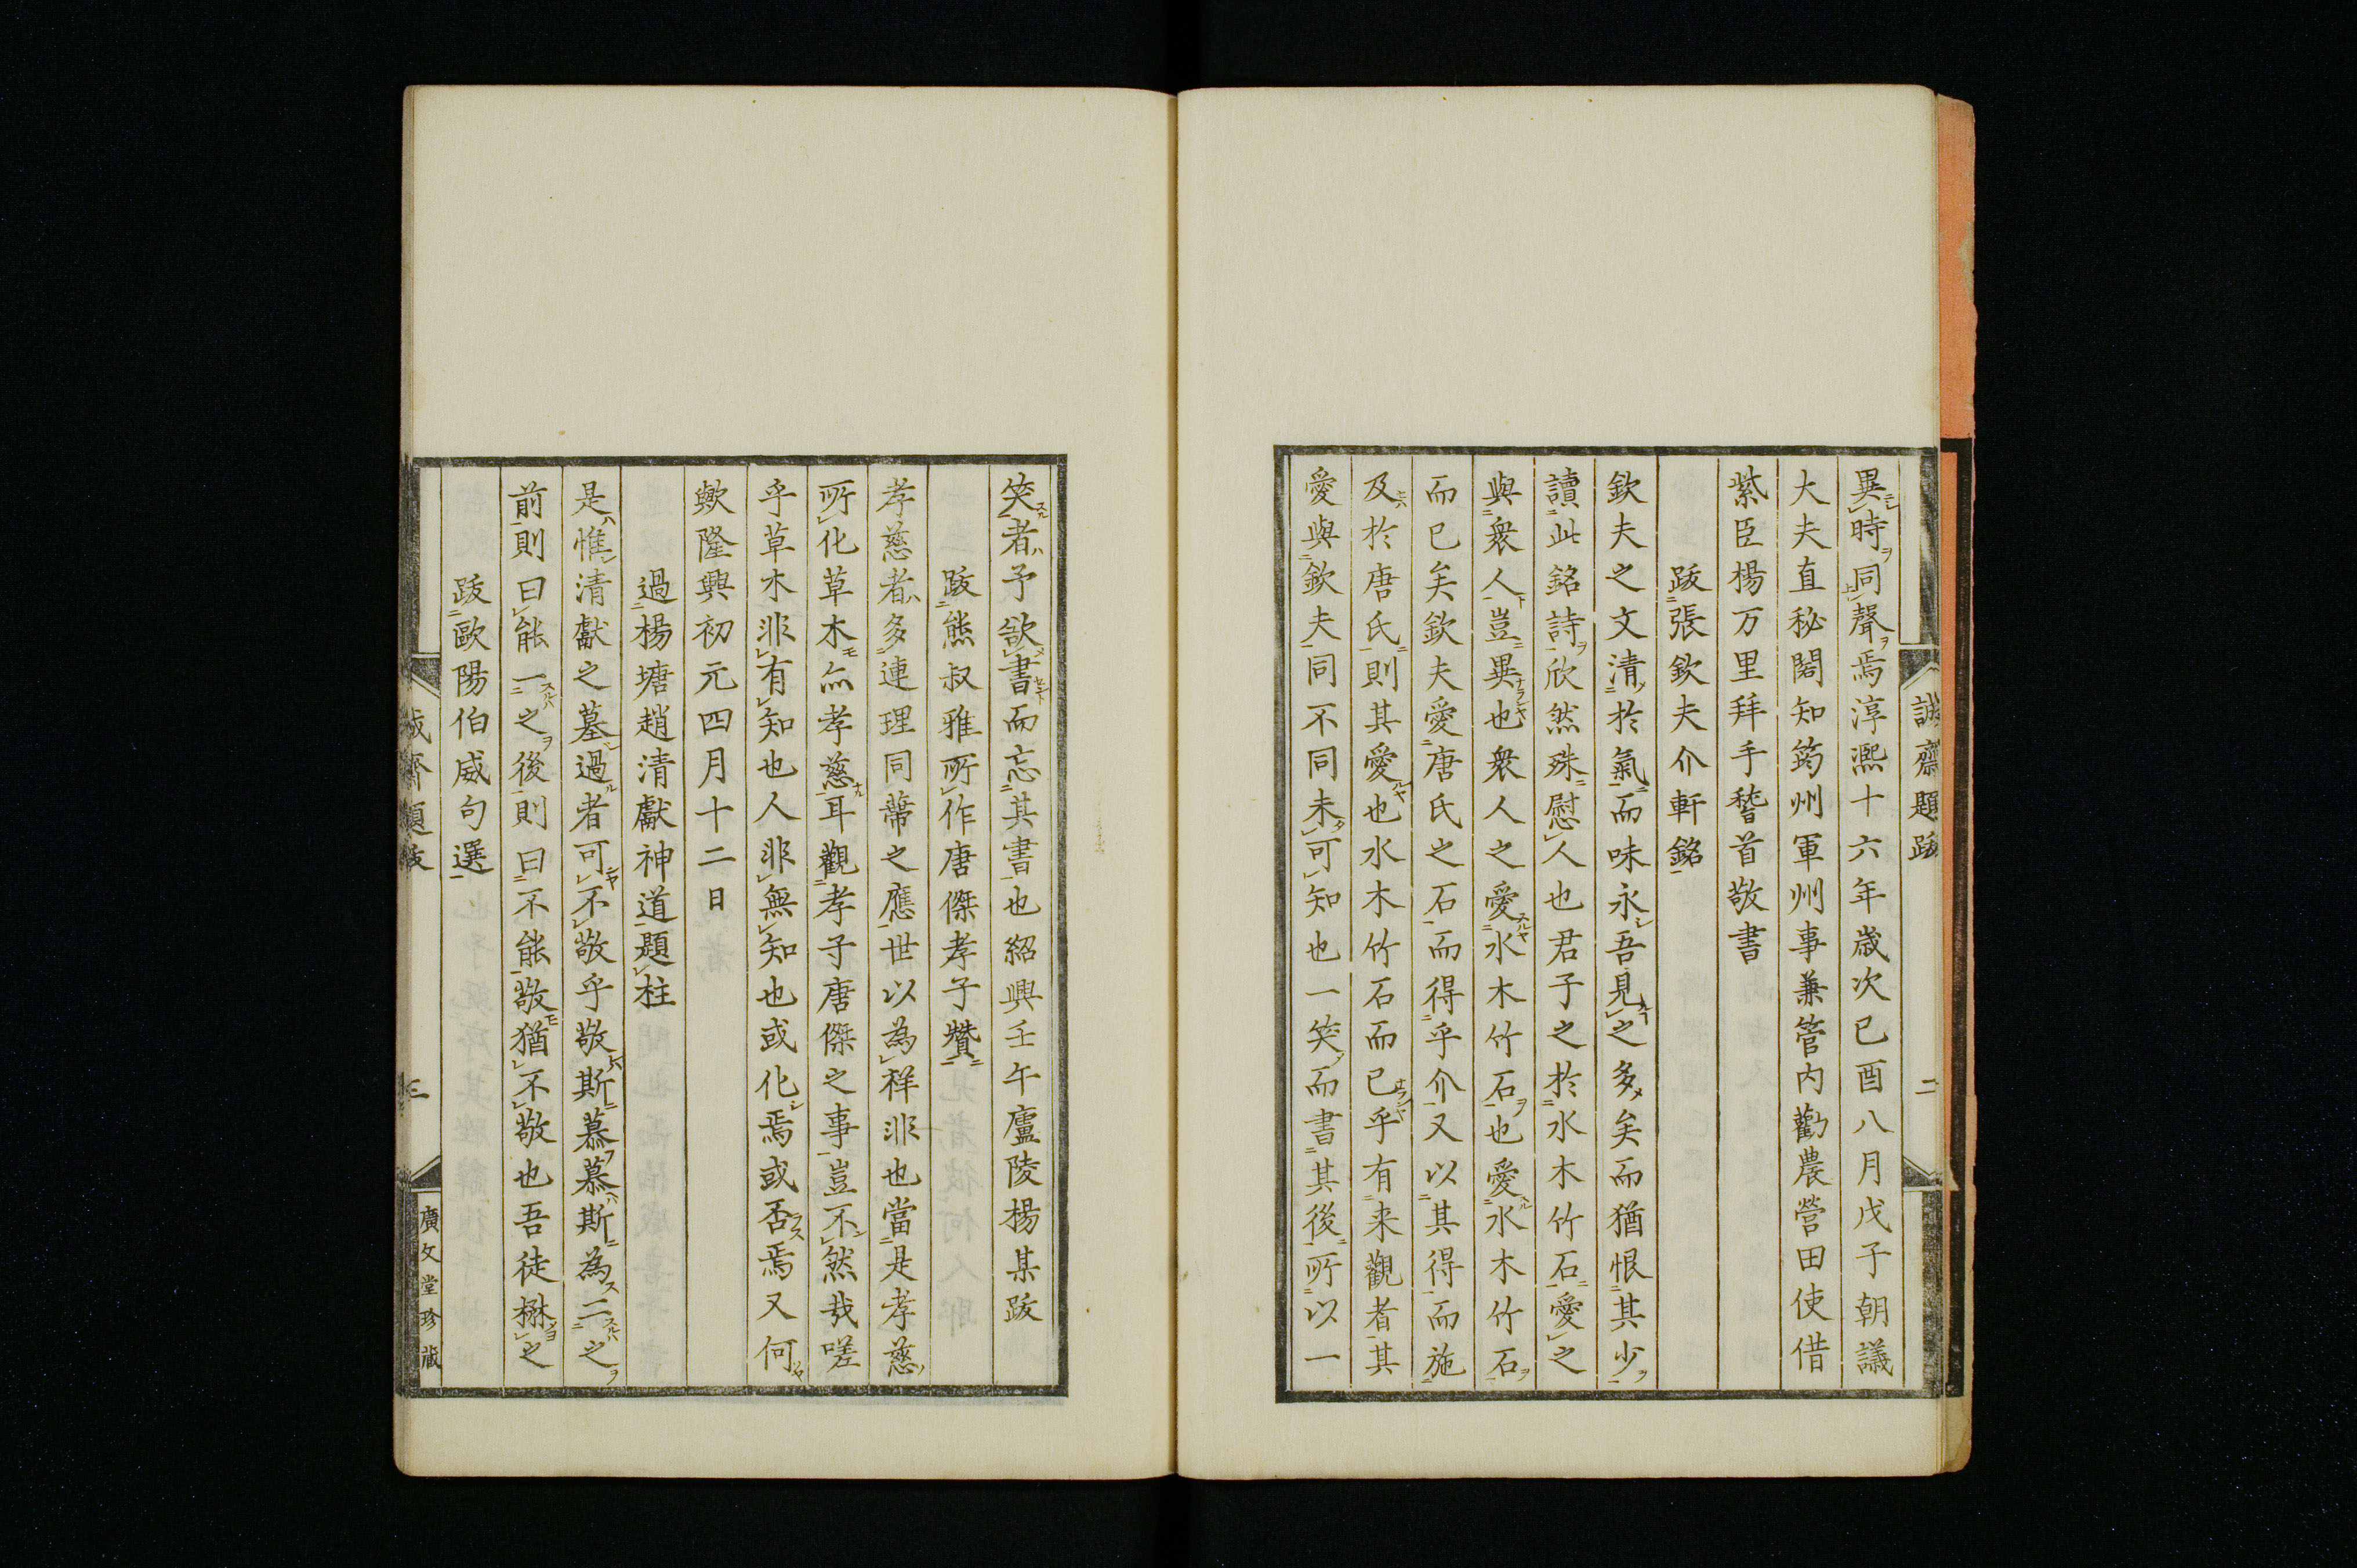 誠齋題跋
二
異時同聲焉淳熙十六年歳次己酉八月戊子朝議
大夫直秘閣知筠州軍州事兼管内勸農營田使借
紫臣楊万里拜手稽首敬書
跋張欽夫介軒銘
欽夫之文清於氣而味永吾見之多矣而猶恨其少
讀此銘詩欣然殊慰人也君子之於水木竹石愛之
與衆人豈異也衆人之愛水木竹石也愛水木竹石
而已矣欽夫愛唐氏之石而得乎介又以其得而施
及於唐氏則其愛也水木竹石而已乎有来觀者其
愛與欽夫同不同未可知也一笑而書其後所以一
笑者予欲書而忘其書也紹興壬午廬陵楊某跋
跋熊叔雅所作唐傑孝子贊
孝慈者多連理同蔕之應世以為祥非也當是孝慈
所化草木亦孝慈耳觀孝子唐傑之事豈不然哉嗟
乎草木非有知也人非無知也或化焉或否焉又何
歟隆興初元四月十二日
過楊塘趙清獻神道題柱
是惟清獻之墓過者可不敬乎敬斯慕慕斯為二之
前則曰能一之後則曰不能敬猶不敬也吾徒楙之
跋歐陽伯威句選
誠齋題跋
三
廣文堂珍藏